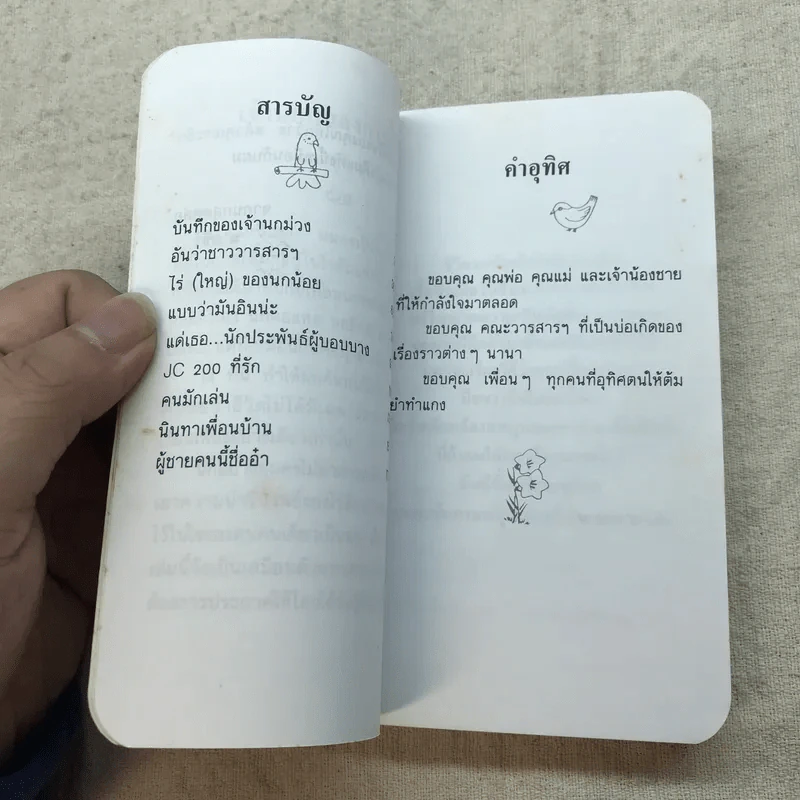 สารบัญ
บันทึกของเจ้านกม่วง
อันว่าชาววารสารฯ
ไร่ (ใหญ่) ของนกน้อย
แบบว่ามันอินน่ะ
แด่เธอ...นักประพันธ์ผู้บอบบาง
JC 200 ที่รัก
คนมักเล่น
นินทาเพื่อนบ้าน
ผู้ชายคนนี้ชื่ออ๋ำ
คำอุทิศ
ขอบคุณ คุณพ่อ คุณแม่ และเจ้าน้องชาย
ที่ให้กำลังใจมาตลอด
ขอบคุณ คณะวารสารฯ ที่เป็นบ่อเกิดของ
เรื่องราวต่างๆ นานา
ขอบคุณ เพื่อนๆ ทุกคนที่อุทิศตนให้ต้ม
ยำทำแกง